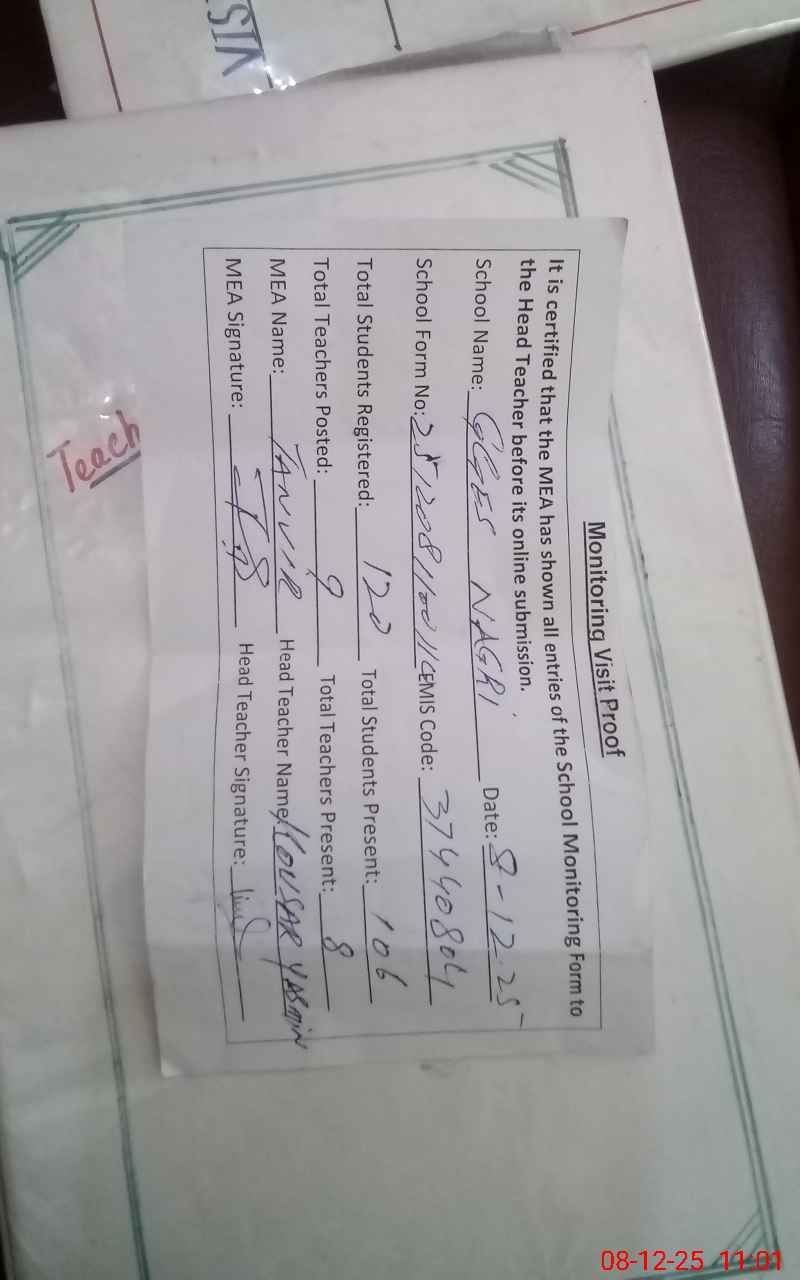 VIS
Monitoring Visit Proof
It is certified that the MEA has shown all entries of the School Monitoring Form to
the Head Teacher before its online submission.
School Name: GGES NAGRI Date: 8-12-25
School Form No: EMIS Code: 37440804
Total Students Registered: 120 Total Students Present: 106
Total Teachers Posted: 9 Total Teachers Present: 8
MEA Name: TANVIR Head Teacher Name: KOUSAR YASMIN
MEA Signature: Head Teacher Signature:
Teach
08-12-25 11:01